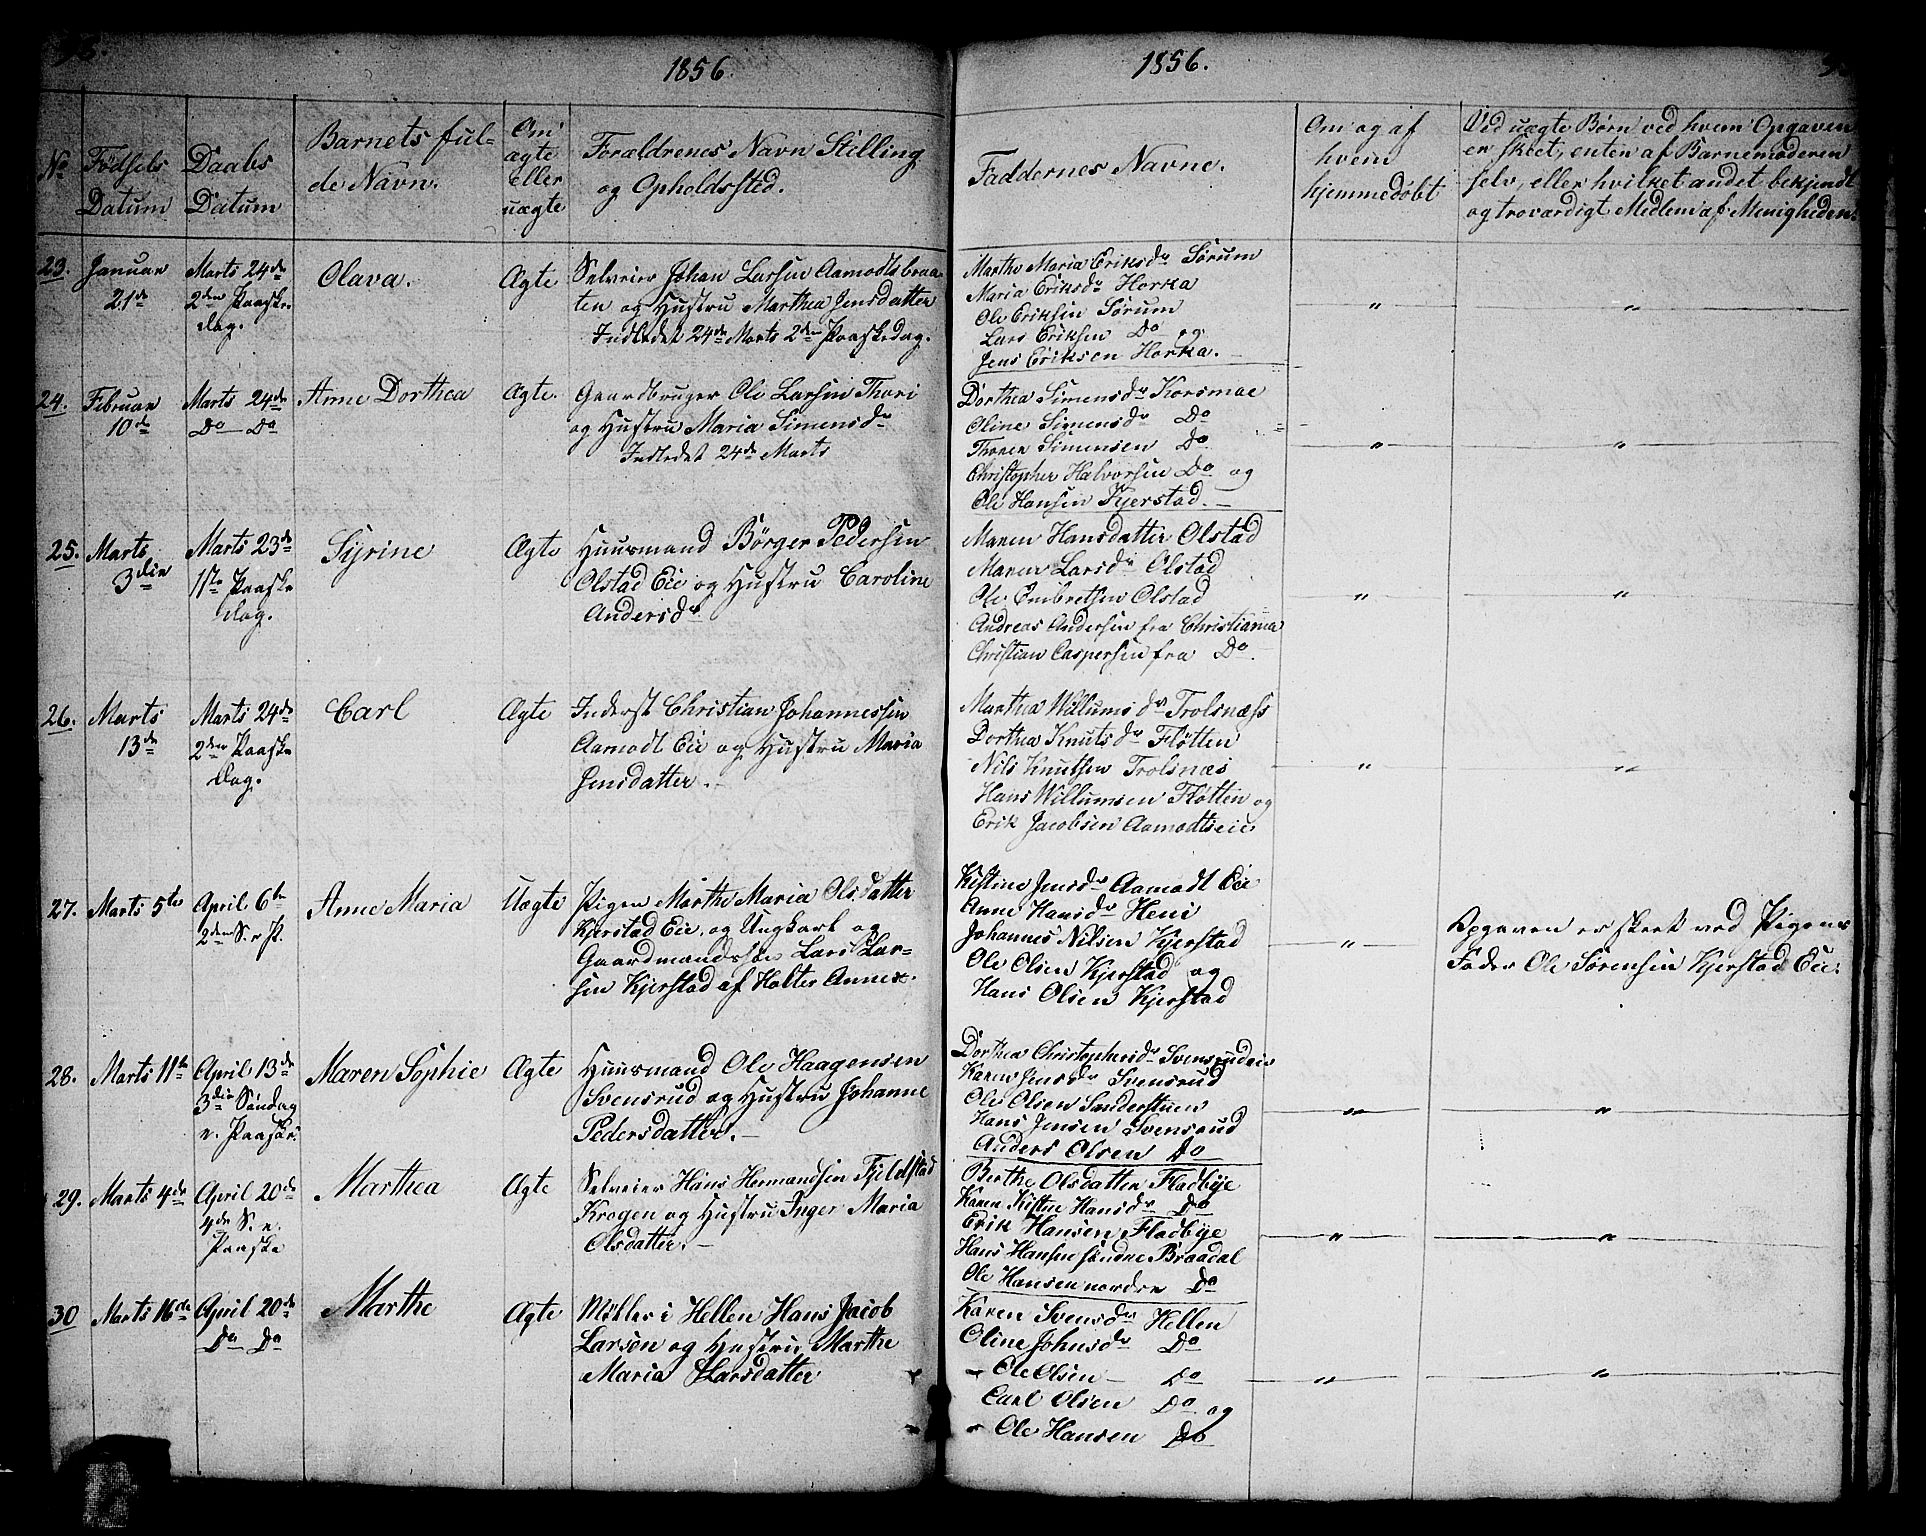 1856.
No
Fødsels
Datum
Daabs
Datum
Barnets ful-
de Navn.
Om
ægte
eller
uægte
Forældrenes Navn Stilling
og Opholdssted.
23.
Januar
21de
Marts 24de
2den Paaske
dag.
Olava.
Ægte
Selveier Johan Larsen Aamodtsbraa
ten og Hustru Marthea Jensdatter
Indledet 24de Marts 2den Paaskedag.
24.
Februar
10de
Marts 24de
Do Do
Anne Dorthea
Ægte.
Gaardbruger Ole Larsen Thori
og Hustru Maria Simensdr
Indledet 24de Marts
25.
Marts
3die
Marts 23de
1ste Paaske
dag.
Syrine
Ægte
Huusmand Börger Pedersen
Olstad Eie og Hustru Caroline
Andersdr
26.
Marts
13de
Marts 24de
2den Paaske
dag.
Carl
Ægte
Inderst Christian Johannessen
Aamodt Eie og Hustru Maria
Jensdatter.
27.
Marts 5te
April 6te
2den S. e. P.
Anne Maria
Uægte
Pigen Marthe Maria Olsdatter
Kjerstad Eie, og Ungkarl og
Gaardmandssøn Lars Lar-
sen Kjerstad af Holter Annex.
28.
Marts 11te
April 13de
3die Søndag
e. Paaske.
Maren Sophie
Ægte
Huusmand Ole Haagensen
Svensrud og Hustru Johanne
Pedersdatter.
29.
Marts 4de
April 20de
4de S. e.
Paaske
Marthea
Ægte
Selveier Hans Hermandsen Fjeldstad
Krogen og Hustru Inger Maria
Olsdatter.
30
Marts 16de
April 20de
Do Do
Marthe
Ægte
Møller i Hellen Hans Jacob
Larsen og Hustru Marthe
Maria Larsdatter
1856.
Faddernes Navne.
Om og af
hvem
hjemmedøbt
Ved uægte Børn ved hvem Opgaven
er skeet, enten af Barnemoderen
selv, eller hvilket andet bekjendt
og troværdigt Medlem af Menigheden.
Marthe Maria Eriksdr Sørum
Maria Eriksdr Horka
Ole Eriksen Sørum
Lars Eriksen Do og
Jens Eriksen Horka.
" "
Dorthea Simensdr Korsmoe
Oline Simensdr Do
Thorer Simensen Do
Christopher Halvorsen Do og
Ole Hansen Kjerstad.
" "
Maren Hansdatter Olstad
Maren Larsdr Olstad
Ole Embretsen Olstad
Andreas Andersen fra Christiania
Christian Caspersen fra Do
" "
Marthea Willumsdr Trolsnæss
Dorthea Knutsdr Fløtten
Nils Knutsen Trolsnæs
Hans Willumsen Fløtten og
Erik Jacobsen Aamodtseie
" "
Kistine Jensdr Aamodt Eie
Anne Hansdr Heni
Johannes Nilsen Kjerstad
Ole Olsen Kjerstad og
Hans Olsen Kjerstad
"
Opgaven er skeet ved Pigens
Fader Ole Sørensen Kjerstad Eie.
Dorthea Christophersdr Svensrudeie
Karen Jensdr Svensrud
Ole Olsen Sanderstuen
Hans Jensen Svensrud
Anders Olsen Do
" "
Berthe Olsdatter Fladbye
Karen Kistine Hansdr Do
Erik Hansen Fladbye
Hans Hansen søndre Braadal
Ole Hansen nordre Do
" "
Karen Svensdr Hellen
Oline Johnsdr Do
Ole Olsen Do
Carl Olsen Do og
Ole Hansen Do
" "